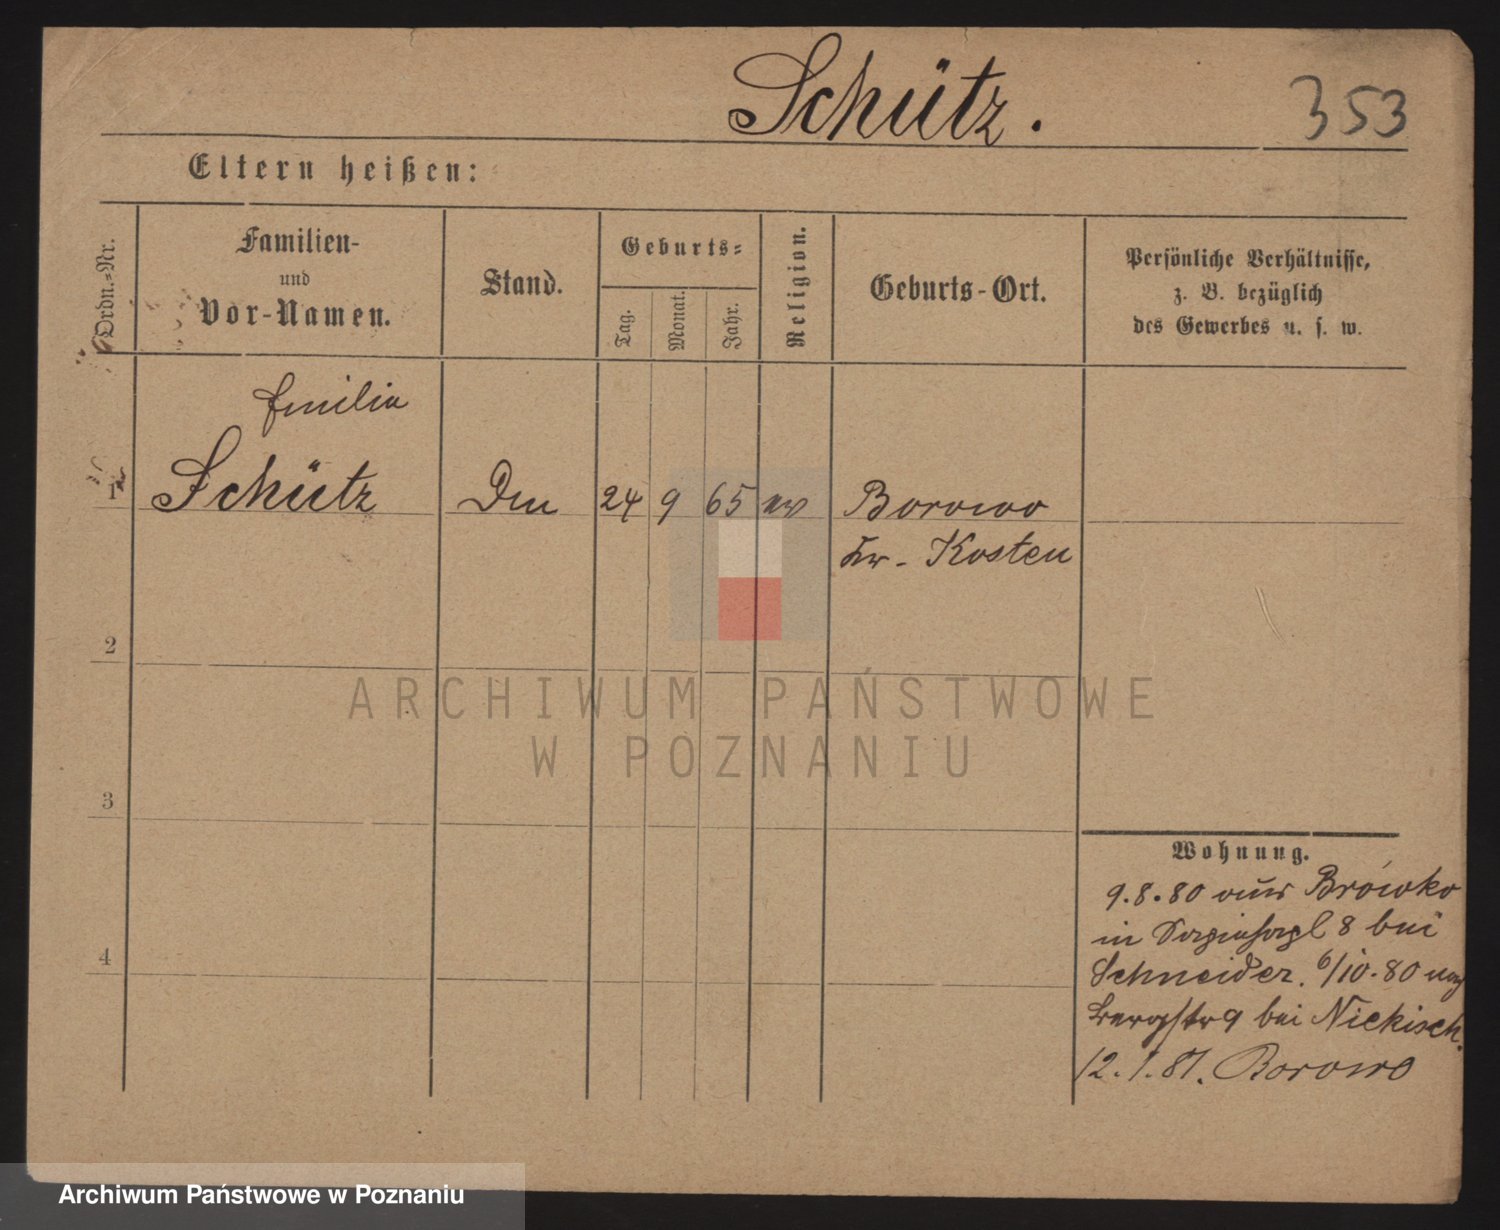 Schütz.
353
Eltern heißen:
Ordn.=Nr.
Familien-
und
Vor-Namen.
Stand.
Geburts=
Tag.
Monat.
Jahr.
Religion.
Geburts-Ort.
Persönliche Verhältnisse,
z. B. bezüglich
des Gewerbes u. s. w.
Emilia
1 Schütz 24 9 65 ev Borowo
Kr. Kosten
2
3
4
Wohnung.
9.8.80 aus Brówko
in 8 bei
Schneider. 6/10.80 nach
Bergstr 9 bei Niekisch.
12.1.81. Borowo
ARCHIWUM PAŃSTWOWE
W POZNANIU
Archiwum Państwowe w Poznaniu